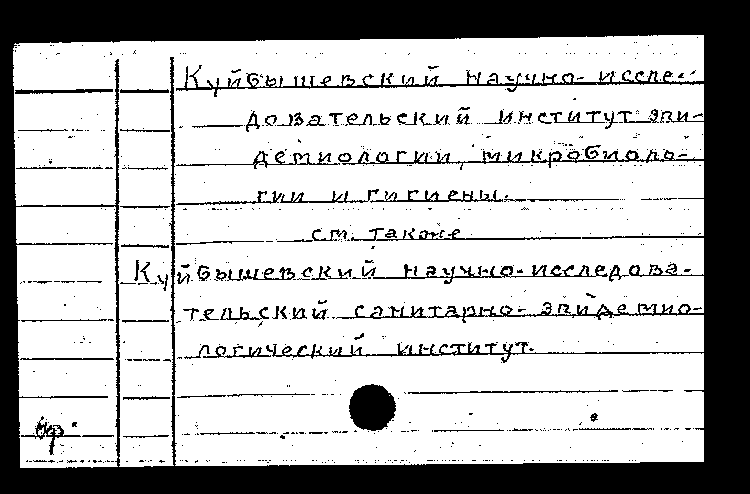 Куйбышевский научно-иссле-
довательский институт эпи-
демиологии, микробиоло-
гии и гигиены.
см. также
Куйбышевский научно-исследова-
тельский санитарно-эпидемио-
логический институт.